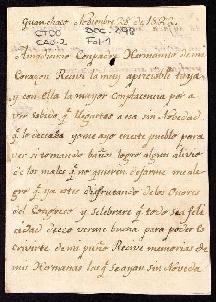 Guanchaco Noviembre 28 de 1822.
CTDO DOC. 298
CAJ-2 Fol-1
Compadre Hermanito de mi
Corazon Recivi la muy apreciable tuya
y con ella la mayor Complacencia por a
ver sabido q llegastes a esa sin Novedad
lo deceaba yo me allo en este pueblo para
ver si tomando baños logro algun alivio
de los males q no quieren dejarme me ale
gro q ya estes disfrutando de los Onores
del Congreso y selebrare q todo sea feli
cidad deceo verme buena para poder te
escrivirte de mi puño Recive memorias de
mis Hermanas las q se ayan sin Noveda